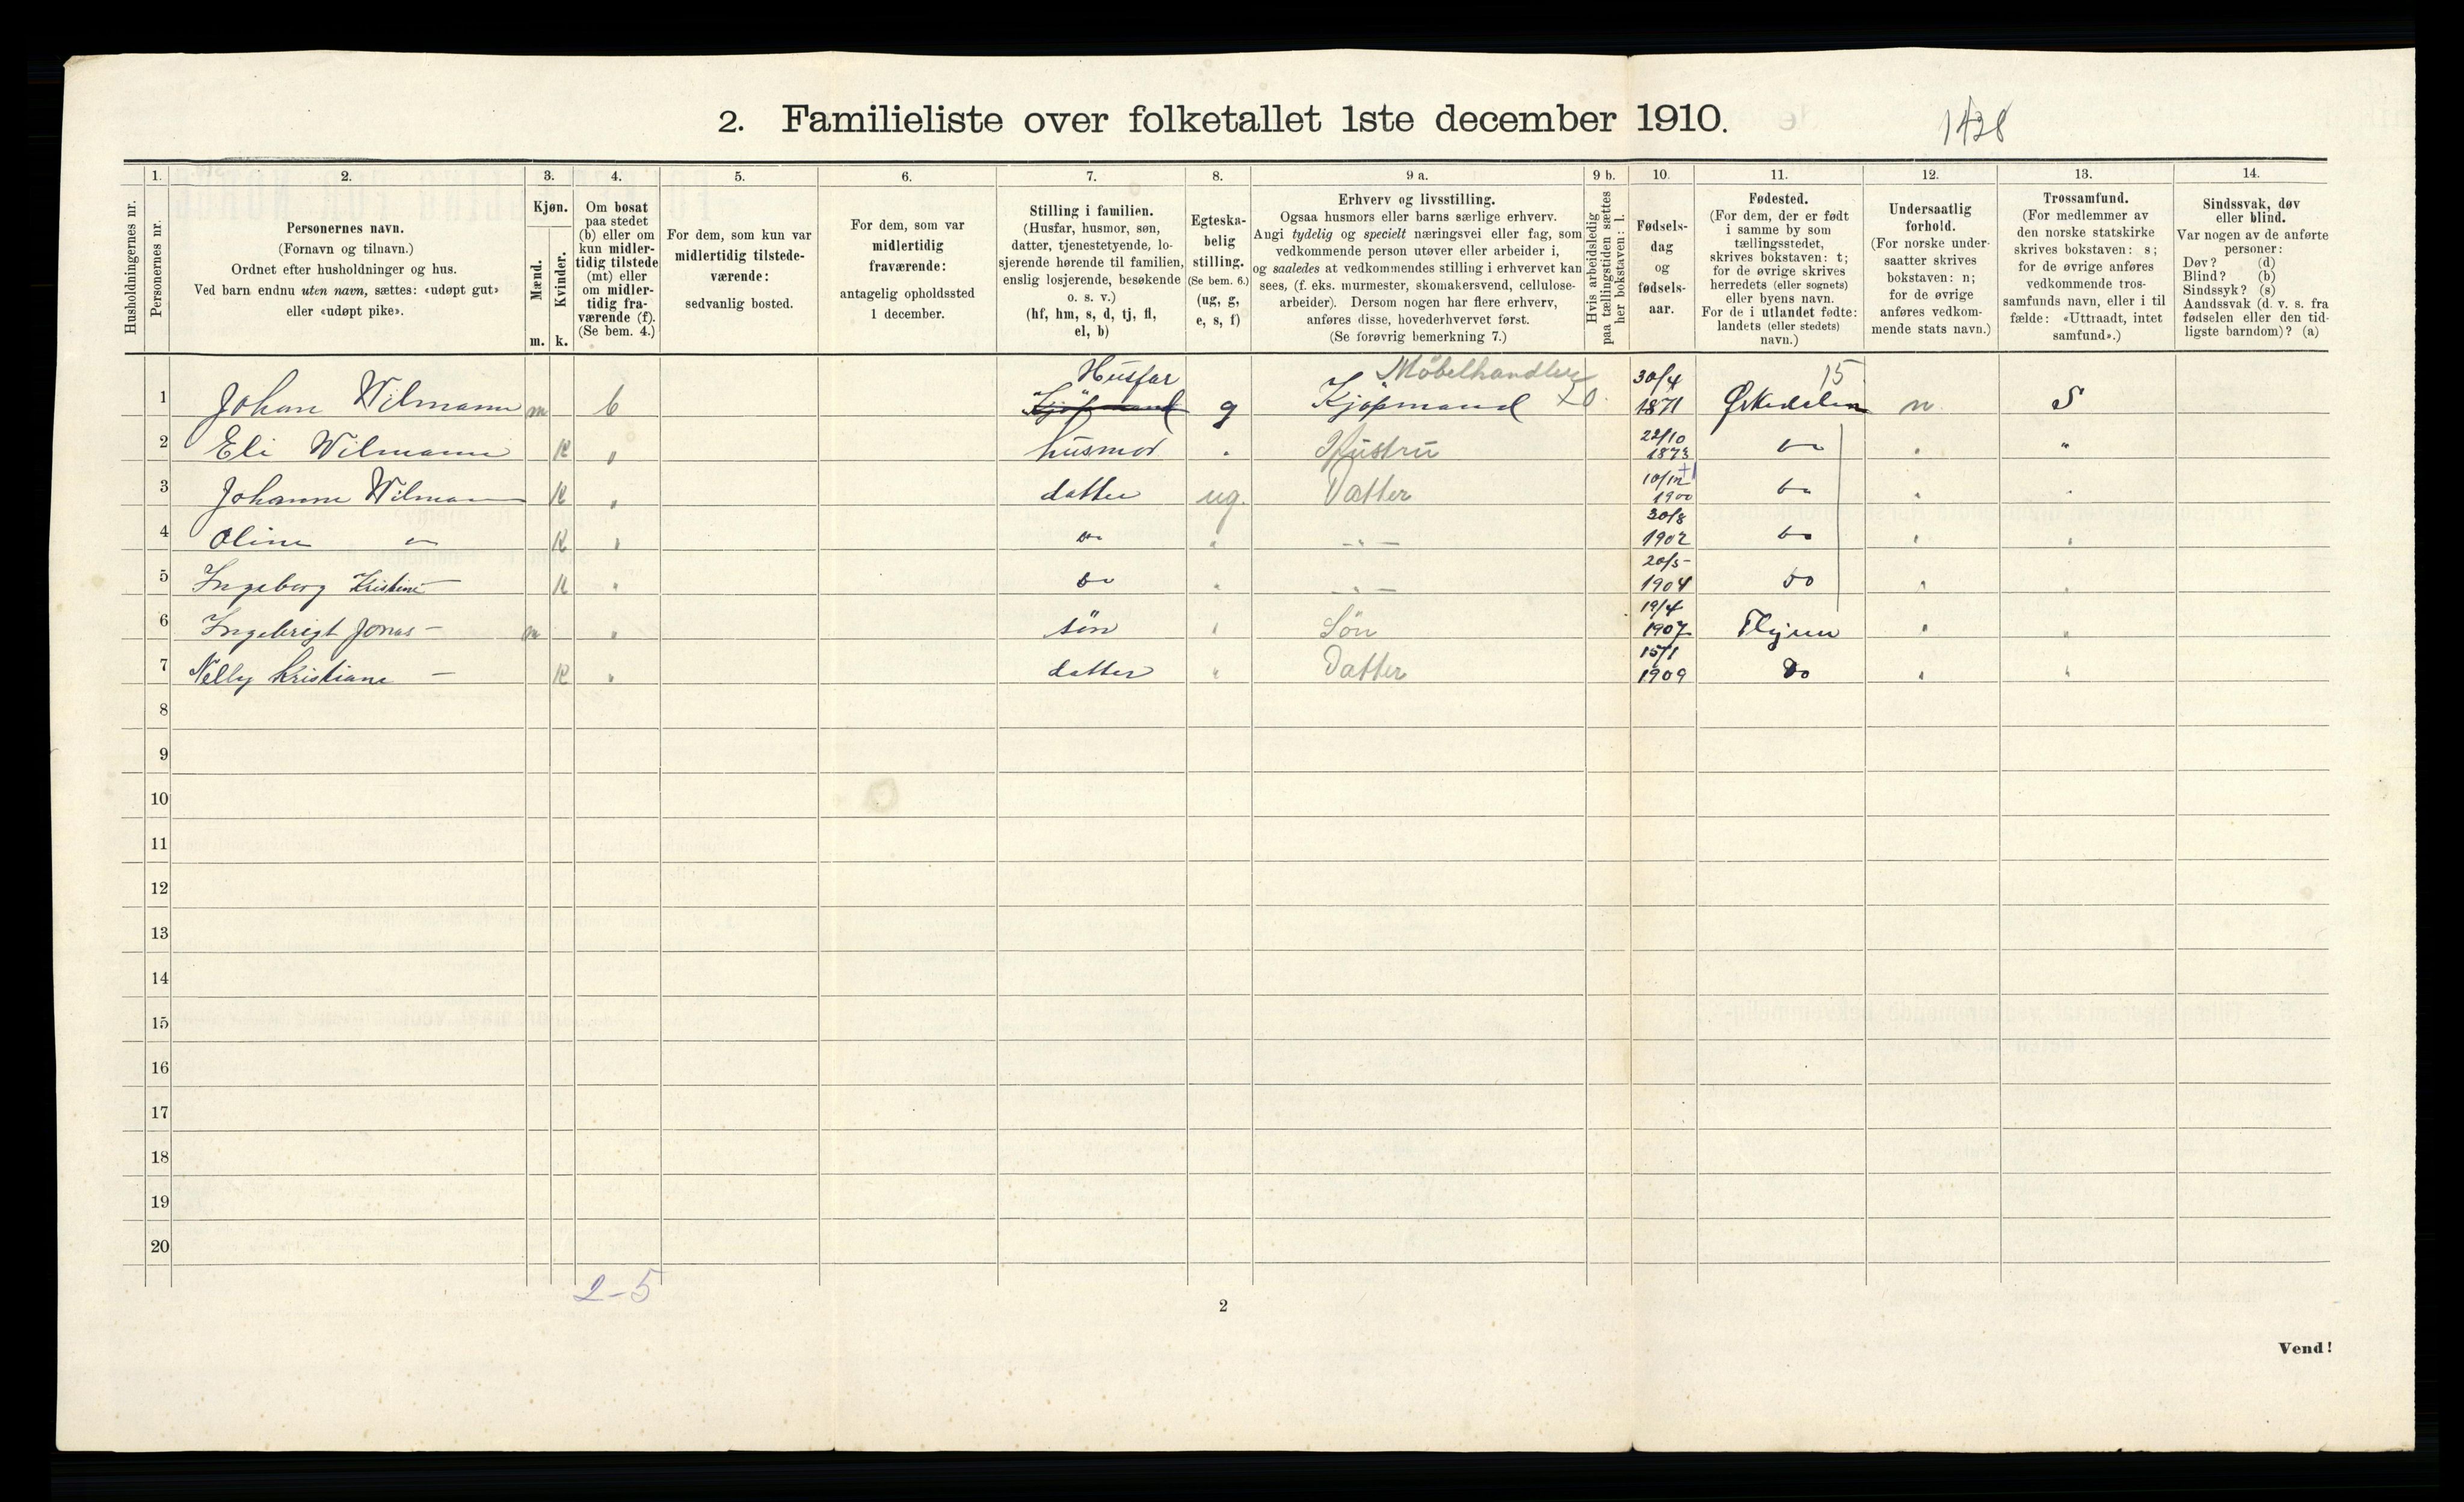 2. Familieliste over folketallet 1ste december 1910.
1428
1. 2. 3. 4. 5. 6. 7. 8. 9 a. 9 b. 10. 11. 12. 13. 14.
Husholdningernes nr.
Personernes nr.
Personernes navn.
(Fornavn og tilnavn.)
Ordnet efter husholdninger og hus.
Ved barn endnu uten navn, sættes: «udøpt gut»
eller «udøpt pike».
Kjøn.
Mænd.
Kvinder.
m. k.
Om bosat
paa stedet
(b) eller om
kun midler-
tidig tilstede
(mt) eller
om midler-
tidig fra-
værende (f).
(Se bem. 4.)
For dem, som kun var
midlertidig tilstede-
værende:
sedvanlig bosted.
For dem, som var
midlertidig
fraværende:
antagelig opholdssted
1 december.
Stilling i familien.
(Husfar, husmor, søn,
datter, tjenestetyende, lo-
sjerende hørende til familien,
enslig losjerende, besøkende
o. s. v.)
(hf, hm, s, d, tj, fl,
el, b)
Egteska-
belig
stilling.
(Se bem. 6.)
(ug, g,
e, s, f)
Erhverv og livsstilling.
Ogsaa husmors eller barns særlige erhverv.
Angi tydelig og specielt næringsvei eller fag, som
vedkommende person utøver eller arbeider i,
og saaledes at vedkommendes stilling i erhvervet kan
sees, (f. eks. murmester, skomakersvend, cellulose-
arbeider). Dersom nogen har flere erhverv,
anføres disse, hovederhvervet først.
(Se forøvrig bemerkning 7.)
Hvis arbeidsledig
paa tællingstiden sættes
her bokstaven: l.
Fødsels-
dag
og
fødsels-
aar.
Fødested.
(For dem, der er født
i samme by som
tællingsstedet,
skrives bokstaven: t;
for de øvrige skrives
herredets (eller sognets)
eller byens navn.
For de i utlandet fødte:
landets (eller stedets)
navn.)
Undersaatlig
forhold.
(For norske under-
saatter skrives
bokstaven: n;
for de øvrige
anføres vedkom-
mende stats navn.)
Trossamfund.
(For medlemmer av
den norske statskirke
skrives bokstaven: s;
for de øvrige anføres
vedkommende tros-
samfunds navn, eller i til
fælde: «Uttraadt, intet
samfund».)
Sindssvak, døv
eller blind.
Var nogen av de anførte
personer:
Døv? (d)
Blind? (b)
Sindssyk? (s)
Aandssvak (d. v. s. fra
fødselen eller den tid-
ligste barndom)? (a)
Husfar Möbelhandler 30/4 15
1 Johan Wilmann m b Kjöpmand g Kjöpmand 1871 Ørkedalen n S
22/10
2 Eli Wilmann K " husmor " Hustru 1873 do " "
10/12
3 Johanne Wilmann K " datter ug. Datter 1900 do " "
30/8
4 Oline do K " do " - " - 1902 do " "
20/5
5 Ingeborg Kristine — K " do " - " - 1904 do " "
19/4
6 Ingebrigt Jonas — m " sön " Sön 1907 " "
15/1
7 Nelly Kristiane — K " datter " Datter 1909 Do " "
8
9
10
11
12
13
14
15
16
17
18
19
20
2-5
2
Vend!